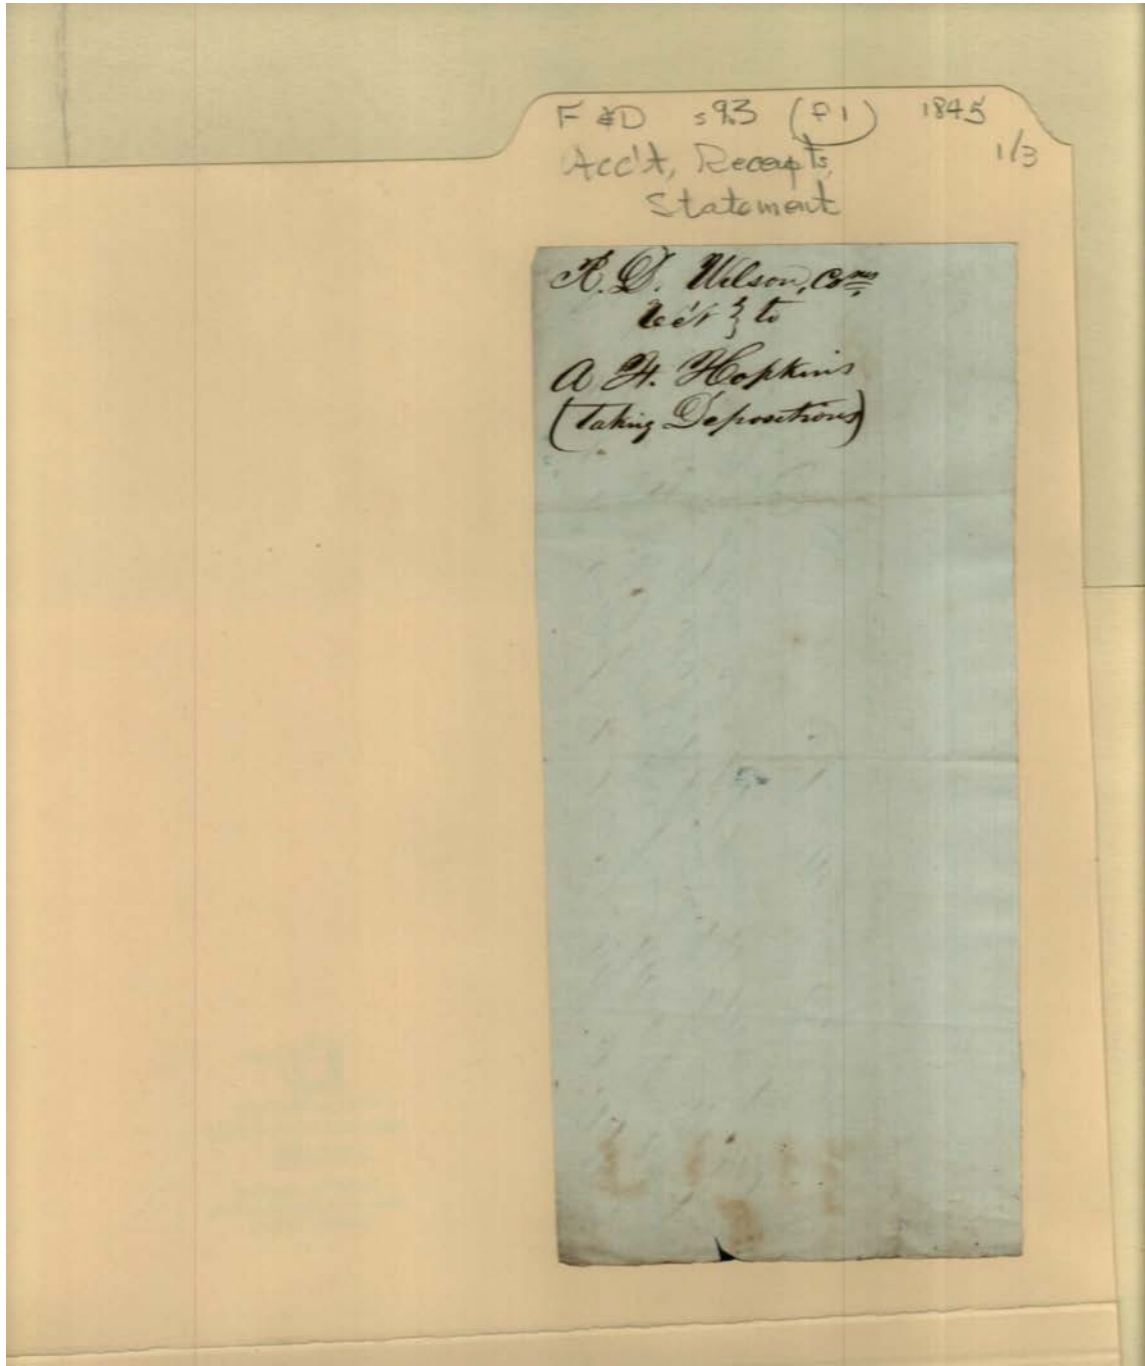 F &D s 93 (f 1) 1845
1/3
Acc't, Receipts,
Statement
R. D. Wilson,
Rec't } to
A. H. Hopkins
(taking Depositions)